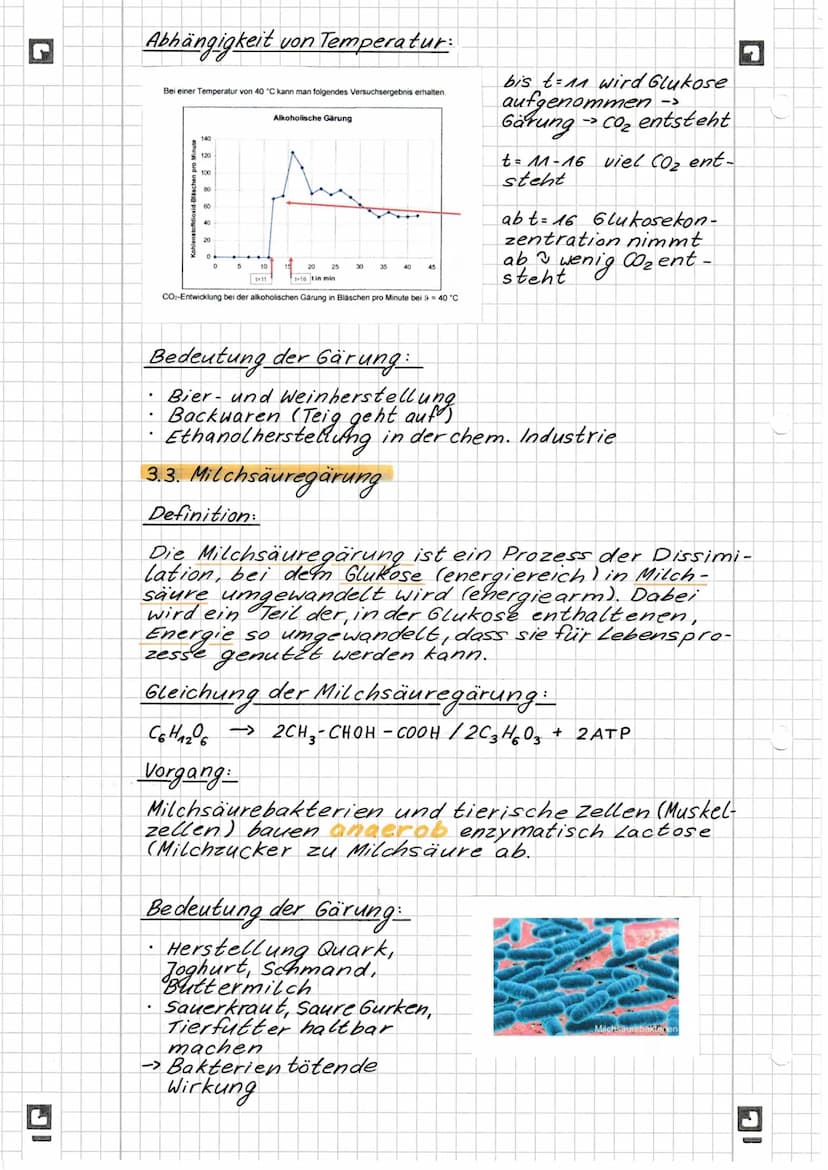 Abhängigkeit von Temperatur:
Bei einer Temperatur von 40 °C kann man folgendes Versuchsergebnis erhalten.
Alkoholische Gärung
Kohlenstoffdioxid-Bläschen pro Minute
140
120
100
80
60
40
20
0
0 5 10 15 20 25 30 35 40 45
t=11 t=16 t in min
CO₂-Entwicklung bei der alkoholischen Gärung in Bläschen pro Minute bei ϑ = 40 °C
bis t=11 wird Glukose
aufgenommen ->
Gärung -> CO₂ entsteht
t= 11-16 viel CO₂ ent-
steht
ab t= 16 Glukosekon-
zentration nimmt
ab ~> wenig CO₂ ent-
steht
Bedeutung der Gärung:
· Bier- und Weinherstellung
· Backwaren (Teig geht auf)
· Ethanolherstellung in der chem. Industrie
3.3. Milchsäuregärung
Definition:
Die Milchsäuregärung ist ein Prozess der Dissimi-
lation, bei dem Glukose (energiereich) in Milch-
säure umgewandelt wird (energiearm). Dabei
wird ein Teil der, in der Glukose enthaltenen,
Energie so umgewandelt, dass sie für Lebenspro-
zesse genutzt werden kann.
Gleichung der Milchsäuregärung:
C₆H₁₂O₆ -> 2CH₃-CHOH-COOH / 2C₃H₆O₃ + 2ATP
Vorgang:
Milchsäurebakterien und tierische Zellen (Muskel-
zellen) bauen anaerob enzymatisch Lactose
(Milchzucker zu Milchsäure ab.
Bedeutung der Gärung:
· Herstellung Quark,
Joghurt, Schmand,
Buttermilch
· Sauerkraut, Saure Gurken,
Tierfutter haltbar
machen
-> Bakterien tötende
Wirkung
Milchsäurebakterien